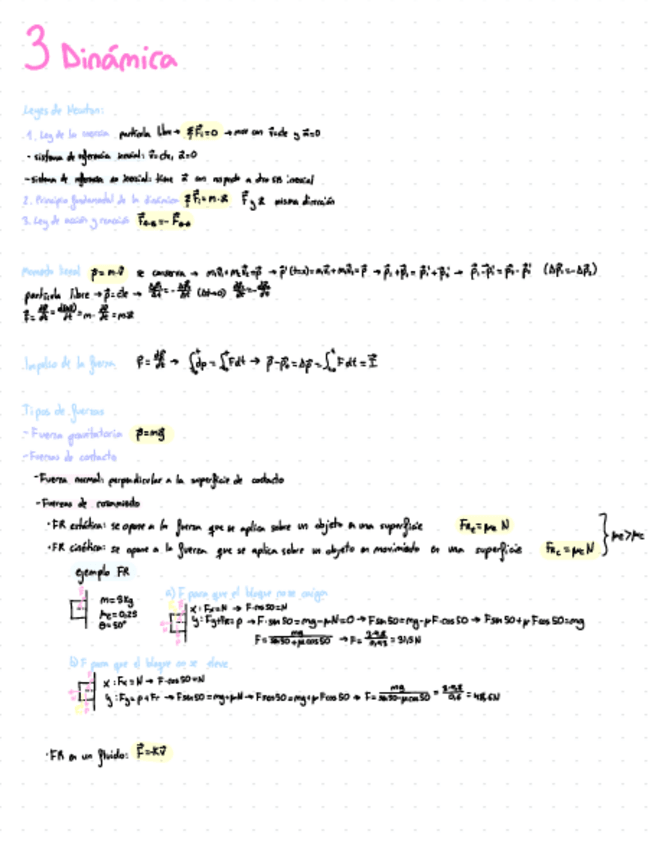 3 Dinámica
Leyes de Newton:
1. Ley de la inercia partícula libre → ΣF⃗i=0 → mov con v⃗=cte y a⃗=0
· sistema de referencia inercial: v⃗=cte, a⃗=0
-sistema de referencia no inercial: tiene a⃗ con respecto a otro SR inercial
2. Principio fundamental de la dinámica ΣF⃗i=m·a⃗ F⃗ y a⃗ misma dirección
3. Ley de acción y reacción
Momento lineal p⃗=m·v⃗ se conserva → m₁v⃗₁+m₂v⃗₂=p⃗ → p⃗₁+p⃗₂=p⃗₁'+p⃗₂' → (Δp⃗₁=-Δp⃗₂)
partícula libre → p⃗=cte → (Δt→0)
F⃗=dp⃗/dt=d(mv⃗)/dt=m·dv⃗/dt=ma⃗
Impulso de la fuerza F⃗=dp⃗/dt → ∫dp=∫Fdt → p⃗-p⃗₀=Δp⃗=∫Fdt=I⃗
Tipos de fuerzas
-Fuerza gravitatoria p⃗=mg⃗
-Fuerzas de contacto
-Fuerza normal: perpendicular a la superficie de contacto
-Fuerzas de rozamiento
·FR estática: se opone a la fuerza que se aplica sobre un objeto en una superficie FRe=μeN
·FR cinética: se opone a la fuerza que se aplica sobre un objeto en movimiento en una superficie FRc=μcN
μe>μc
ejemplo FR
a) F para que el bloque no se caiga
m=3kg
μe=0,25
θ=50°
x: Fx=N → F·cos50=N
y: Fy+FR=p → F·sin50=mg-μN=0 → Fsin50=mg-μF·cos50 → Fsin50+μFcos50=mg
F=mg/(sin50+μcos50) → F=
b) F para que el bloque no se eleve
x: Fx=N → F·cos50=N
y: Fy=p+Fr → Fsin50=mg+μN → Fsen50=mg+μFcos50 → F=mg/(sin50-μcos50)=
·FR en un fluido: F⃗=-Kv⃗